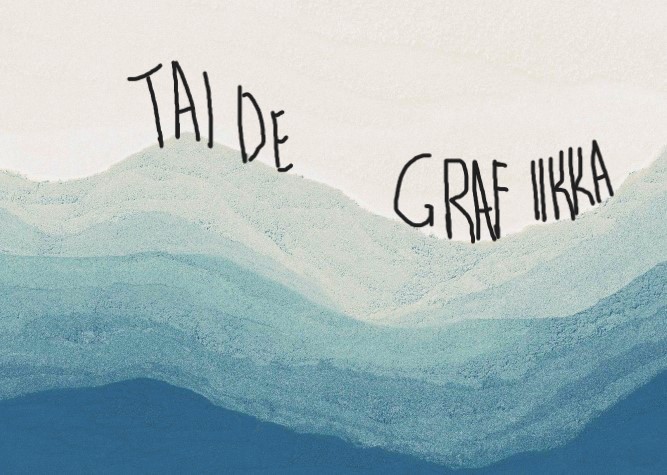 TAIDE
GRAFIIKKA